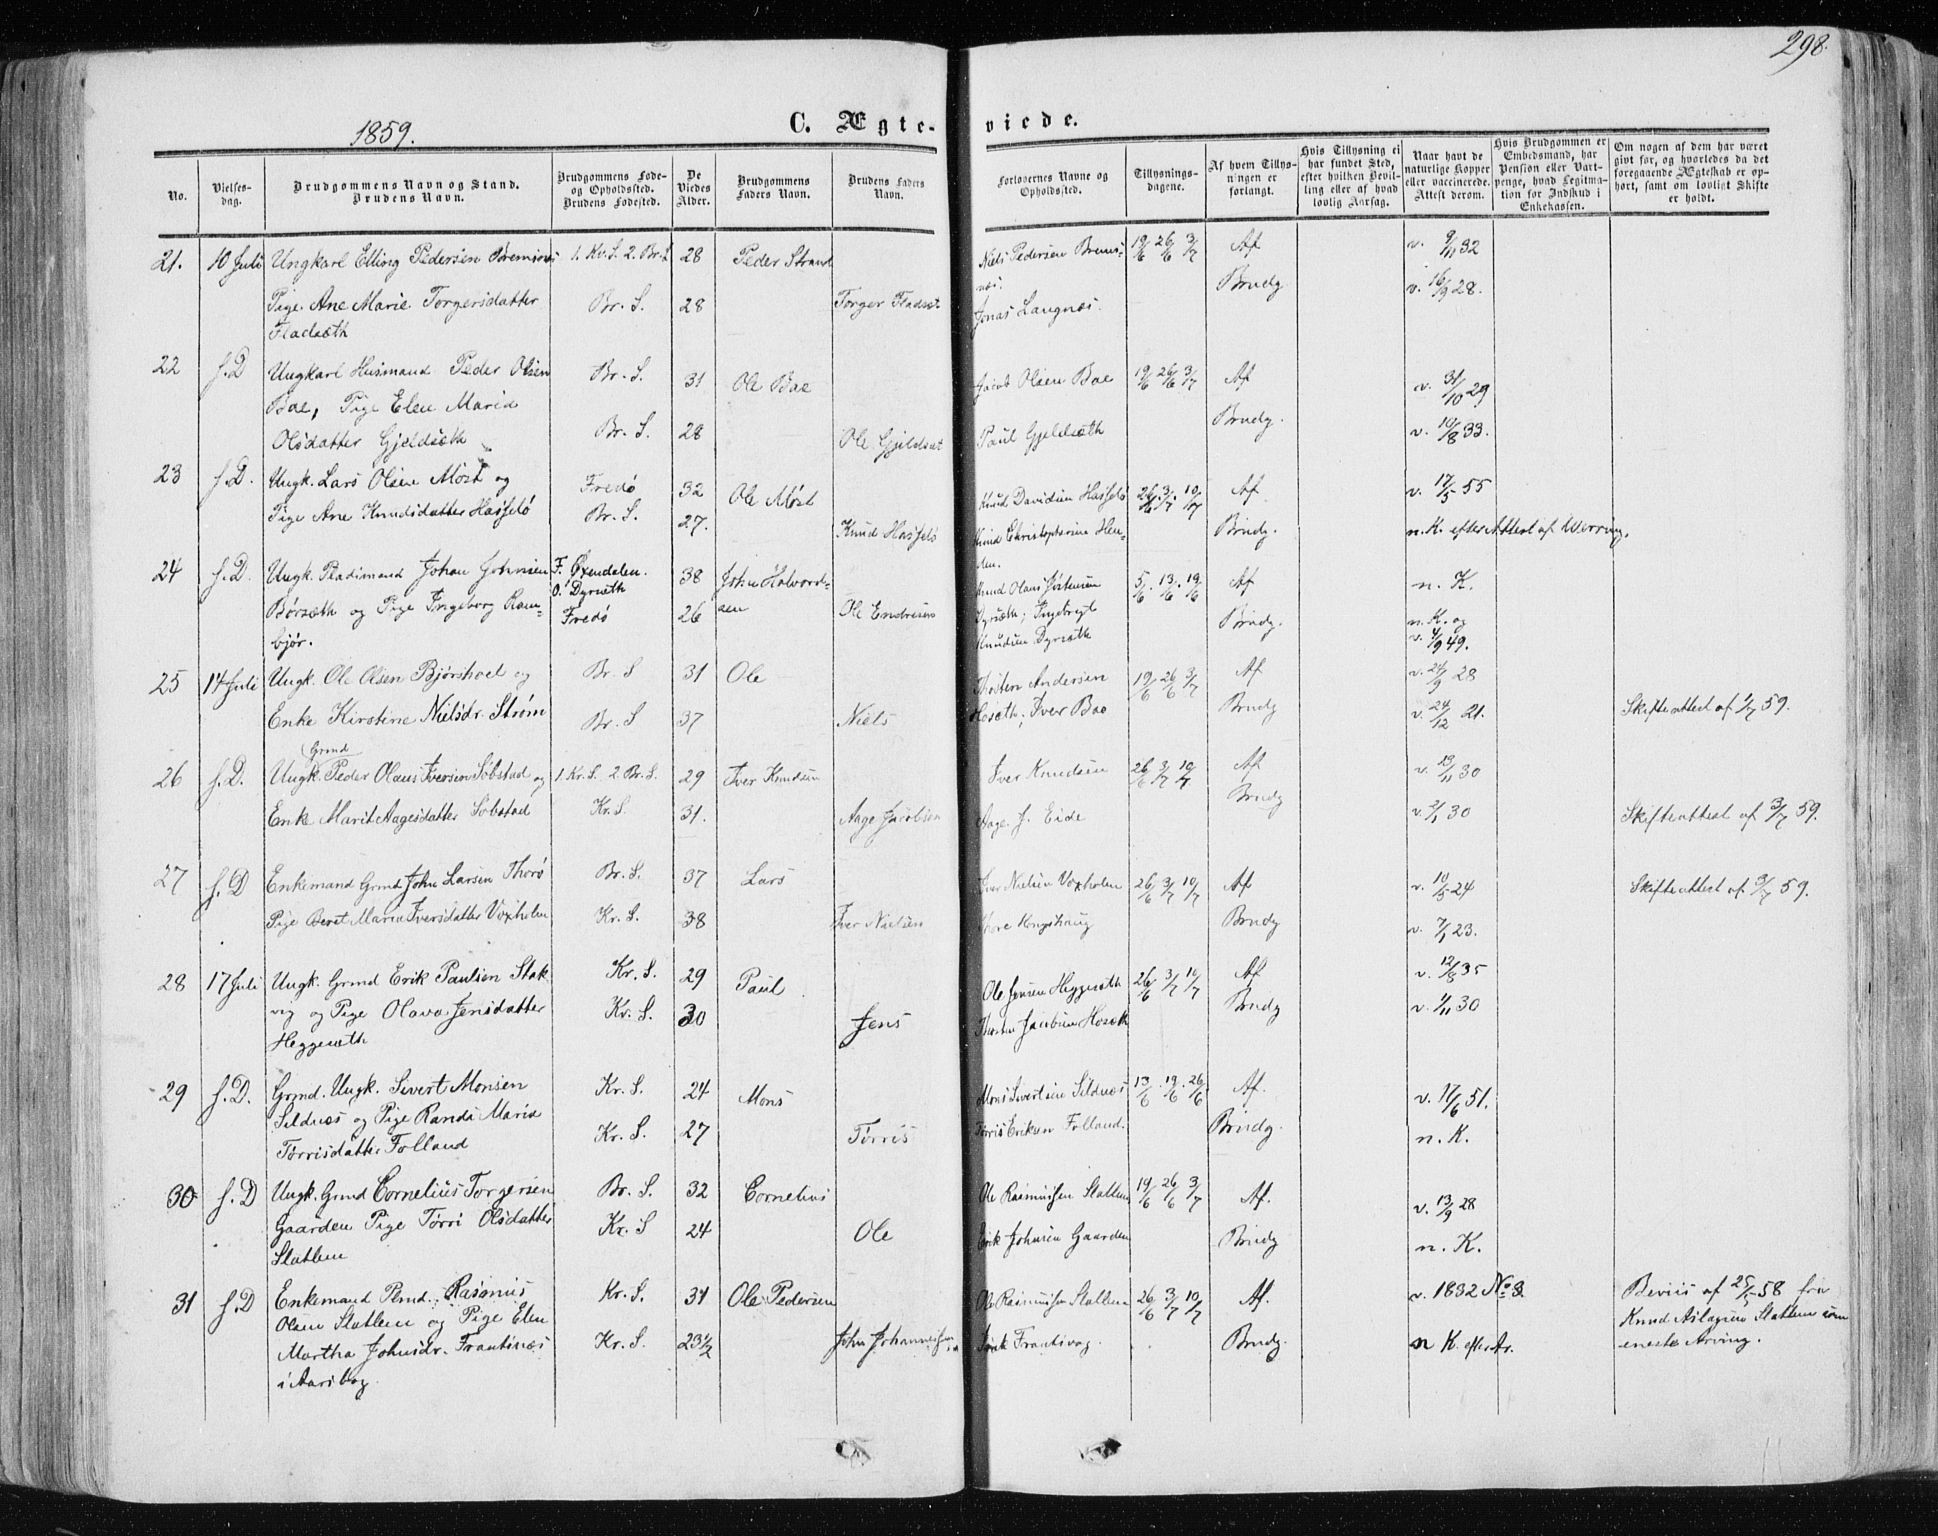 298.
1859.
C. Ægteviede.
No.
Vielses-
dag.
Brudgommens Navn og Stand.
Brudens Navn.
Brudgommens Føde-
og Opholdssted.
Brudens Fødested.
De
Viedes
Alder.
Brudgommens
Faders Navn.
Brudens Faders
Navn.
Forlovernes Navne og
Opholdssted.
Tillysnings-
dagene.
Af hvem Tillys-
ningen er
forlangt.
Hvis Tillysning ei
har fundet Sted,
efter hvilken Bevil-
ling eller af hvad
lovlig Aarsag.
Naar havt de
naturlige Kopper
eller vaccinerede.
Attest derom.
Hvis Brudgommen er
Embedsmand, har
Pension eller Vart-
penge, hvad Legitima-
tion for Indskud i
Enkekassen.
Om nogen af dem har været
givt for, og hvorledes da det
foregaaende Ægteskab er op-
hørt, samt om lovligt Skifte
er holdt.
21. 10 Juli Ungkarl Elling Pedersen 1. Kv. S. 2. Br. S 28 Peder Strand Niels Pedersen Brems- 19/6 26/6 3/7 Af v. 9/11 32
næs.
Pige Ane Marie Torgersdatter Br. S. 28 Torger Fladset Jonas Langnæs. Brudg v. 16/9 28.
Fladsæth
22 f. D Ungkarl Husmand Peder Olsen Br. S. 31 Ole Bae Jacob Olsen Bae 19/6 26/6 3/7 Af v. 31/10 29
Bae, Pige Elen Maria
Olsdatter Gjeldsæth Br. S. 28 Ole Gjeldset Paul Gjeldsæth Brudg. v. 10/8 33.
23 f. D. Ungk. Lars Olsen Møst og Fredø 32 Ole Møst Knud Davidsen Hasselø 26/6 3/7 10/7 Af v. 17/5 55
Pige Ane Knudsdatter Hasselø Br. S. 27. Knud Hasselø Knud Christophersen Hen- Brudg. n. K. efter Attest af Werring.
den.
24 f. D. Ungk. Pladsmand Johan Johnsen F. Øxendalen. 38 John Halvord- Knud Olaus 5/6 13/6 19/6 Af n. K.
O. Dyrsæth sen
Børsæth og Pige Ingeborg Ram- Fredø 26 Ole Endresen Dyrsæth; Ingebregt Brudg. n. K. og
bjør. Knudsen Dyrsæth v. 4/9 49.
25 14 Juli Ungk. Ole Olsen Bjørshoel og Br. S 31 Ole Thosten Andersen 19/6 26/6 3/7 Af v. 24/9 28
Enke Kirstine Nielsdr. Strøm Br. S 37 Niels Hosæth. Iver Bae Brudg v. 24/12 21. Skifteattest af 1/7 59.
Grmd
26 f. D. Ungk. Peder Olaus Iversen Søbstad og 1. Kr. S. 2. Br. S. 29 Iver Knudsen Iver Knudsen 26/6 3/7 10/7 Af v. 13/11 30
Enke Marit Aagesdatter Søbstad Kr. S. 31. Aage Jacobsen Aage J. Eide Brudg v. 2/1 30 Skifteattest af 3/7 59.
27 f. D Enkemand Grmd John Larsen Thorø Br. S. 37 Lars Iver Nielsen Voxholm 26/6 3/7 10/7 Af v. 10/5 24 Skifteattest af 3/7 59.
Pige Beret Maria Iversdatter Voxholm Kr. S. 38 Iver Nielsen Thore Kongshaug Brudg v. 7/1 23.
28 17 Juli Ungk. Grmd Erik Paulsen Stak- Kr. S. 29 Paul Ole Jensen Heggesæth 26/6 3/7 10/7 Af v. 12/8 35
vig og Pige Olava Jensdatter Kv. S. 30 Jens Thosten Jacobsen Hosæth Brudg v. 4/11 30
Heggesæth
29 f. D. Grmd. Ungk. Sivert Monsen Kr. S. 24 Mons Mons Sivertsen Sildnæs 13/6 19/6 26/6 Af. v. 17/6 51.
Sildnæs og Pige Randi Maria
Tørrisdatter Folland Kr. S. 27 Tørris Tørris Eriksen Folland. Brudg. n. K.
30 f. D Ungk. Grmd Cornelius Torgersen Br. S. 32 Cornelius Ole Rasmussen Statlem 19/6 26/6 3/7 Af. v. 13/9 28
Gaarden Pige Tørri Olsdatter Kr. S 24 Ole Erik Johnsen Gaarden Brudg n. K.
Statlem
31 f. D Enkemand Plmd. Rasmus Kr. S. 31 Ole Pedersen Ole Rasmussen Statlem 26/6 3/7 10/7 Af. v. 1832 No 3. Beviis af 25/5 58 fra
Olsen Statlem og Pige Elen Knud Aslagsen Statlem som
Martha Johnsdr. Frantsnæs Kr. S. 23½ John Johannessen Frantsvog. Brudg. n K. efter Ar. eneste Arving.
i Aarsbog.